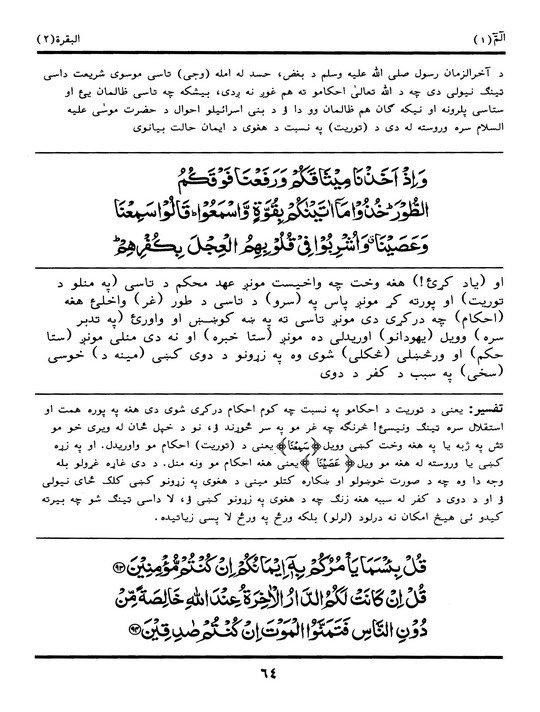 الٓمّٓ (١) البقرة (٢)
د آخرالزمان رسول صلی الله علیه وسلم د بغض، حسد له امله (وجې) تاسې موسوی شریعت داسې
ټینګ نیولی دی چه د الله تعالیٰ احکامو ته هم غوږ نه ږدی، بیشکه چه تاسې ظالمان یئ او
ستاسې پلرونه او نیکه ګان هم ظالمان وو دا ؤ د بنی اسرائیلو احوال د حضرت موسٰی علیه
السلام سره وروسته له دی د (توریت) په نسبت د هغوی د ایمان حالت بیانوی
وَاِذْ اَخَذْنَا مِيْثَاقَكُمْ وَرَفَعْنَا فَوْقَكُمُ
الطُّوْرَ خُذُوْا مَآ اٰتَيْنٰكُمْ بِقُوَّةٍ وَّاسْمَعُوْا قَالُوْا سَمِعْنَا
وَعَصَيْنَا وَاُشْرِبُوْا فِيْ قُلُوْبِهِمُ الْعِجْلَ بِكُفْرِهِمْ
او (یاد کړئ!) هغه وخت چه واخیست مونږ عهد محکم د تاسې (په منلو د
توریت) او پورته کړ مونږ پاس په (سرو) د تاسې د طور (غر) واخلئ هغه
(احکام) چه درکړی دی مونږ تاسې ته په ښه کوښښ او واورئ (په تدبر
سره) وویل (یهودانو) اوریدلی ده مونږ (ستا خبره) او نه دی منلی مونږ (ستا
حکم) او ورڅښلی (څکلی) شوی وه په زړونو د دوی کښې (مینه د) خوسی
(سخی) په سبب د کفر د دوی
تفسیر: یعنی د توریت د احکامو په نسبت چه کوم احکام درکړی شوی دی هغه په پوره همت او
استقلال سره ټینګ ونیسئ! څرنګه چه غر مو په سر ځوړند ؤ، نو د خپل ځان له ویری خو مو
تش په ژبه یا په هغه وخت کښې وویل ﴿سَمِعْنَا﴾ یعنی د (توریت) احکام مو واوریدل. او په زړه
کښې یا وروسته له هغه مو ویل ﴿عَصَيْنَا﴾ یعنی هغه احکام مو ونه منل. د دی غاړه غړولو بله
وجه دا وه چه د صورت خوښولو او ښکاره کتلو مینی د هغوی په زړونو کښې کلک ځای نیولی
ؤ او د دوی د کفر له سببه هغه زنګ چه د هغوی په زړونو کښې ؤ، لا داسې ټینګ شو چه بیرته
کیدو ئی هیڅ امکان نه درلود (لرلو) بلکه ورځ په ورځ لا پسې زیاتیده.
قُلْ بِئْسَمَا يَاْمُرُكُمْ بِهٖٓ اِيْمَانُكُمْ اِنْ كُنْتُمْ مُّؤْمِنِيْنَ ﴿٩٣﴾
قُلْ اِنْ كَانَتْ لَكُمُ الدَّارُ الْاٰخِرَةُ عِنْدَ اللّٰهِ خَالِصَةً مِّنْ
دُوْنِ النَّاسِ فَتَمَنَّوُا الْمَوْتَ اِنْ كُنْتُمْ صٰدِقِيْنَ ﴿٩٤﴾
٦٤